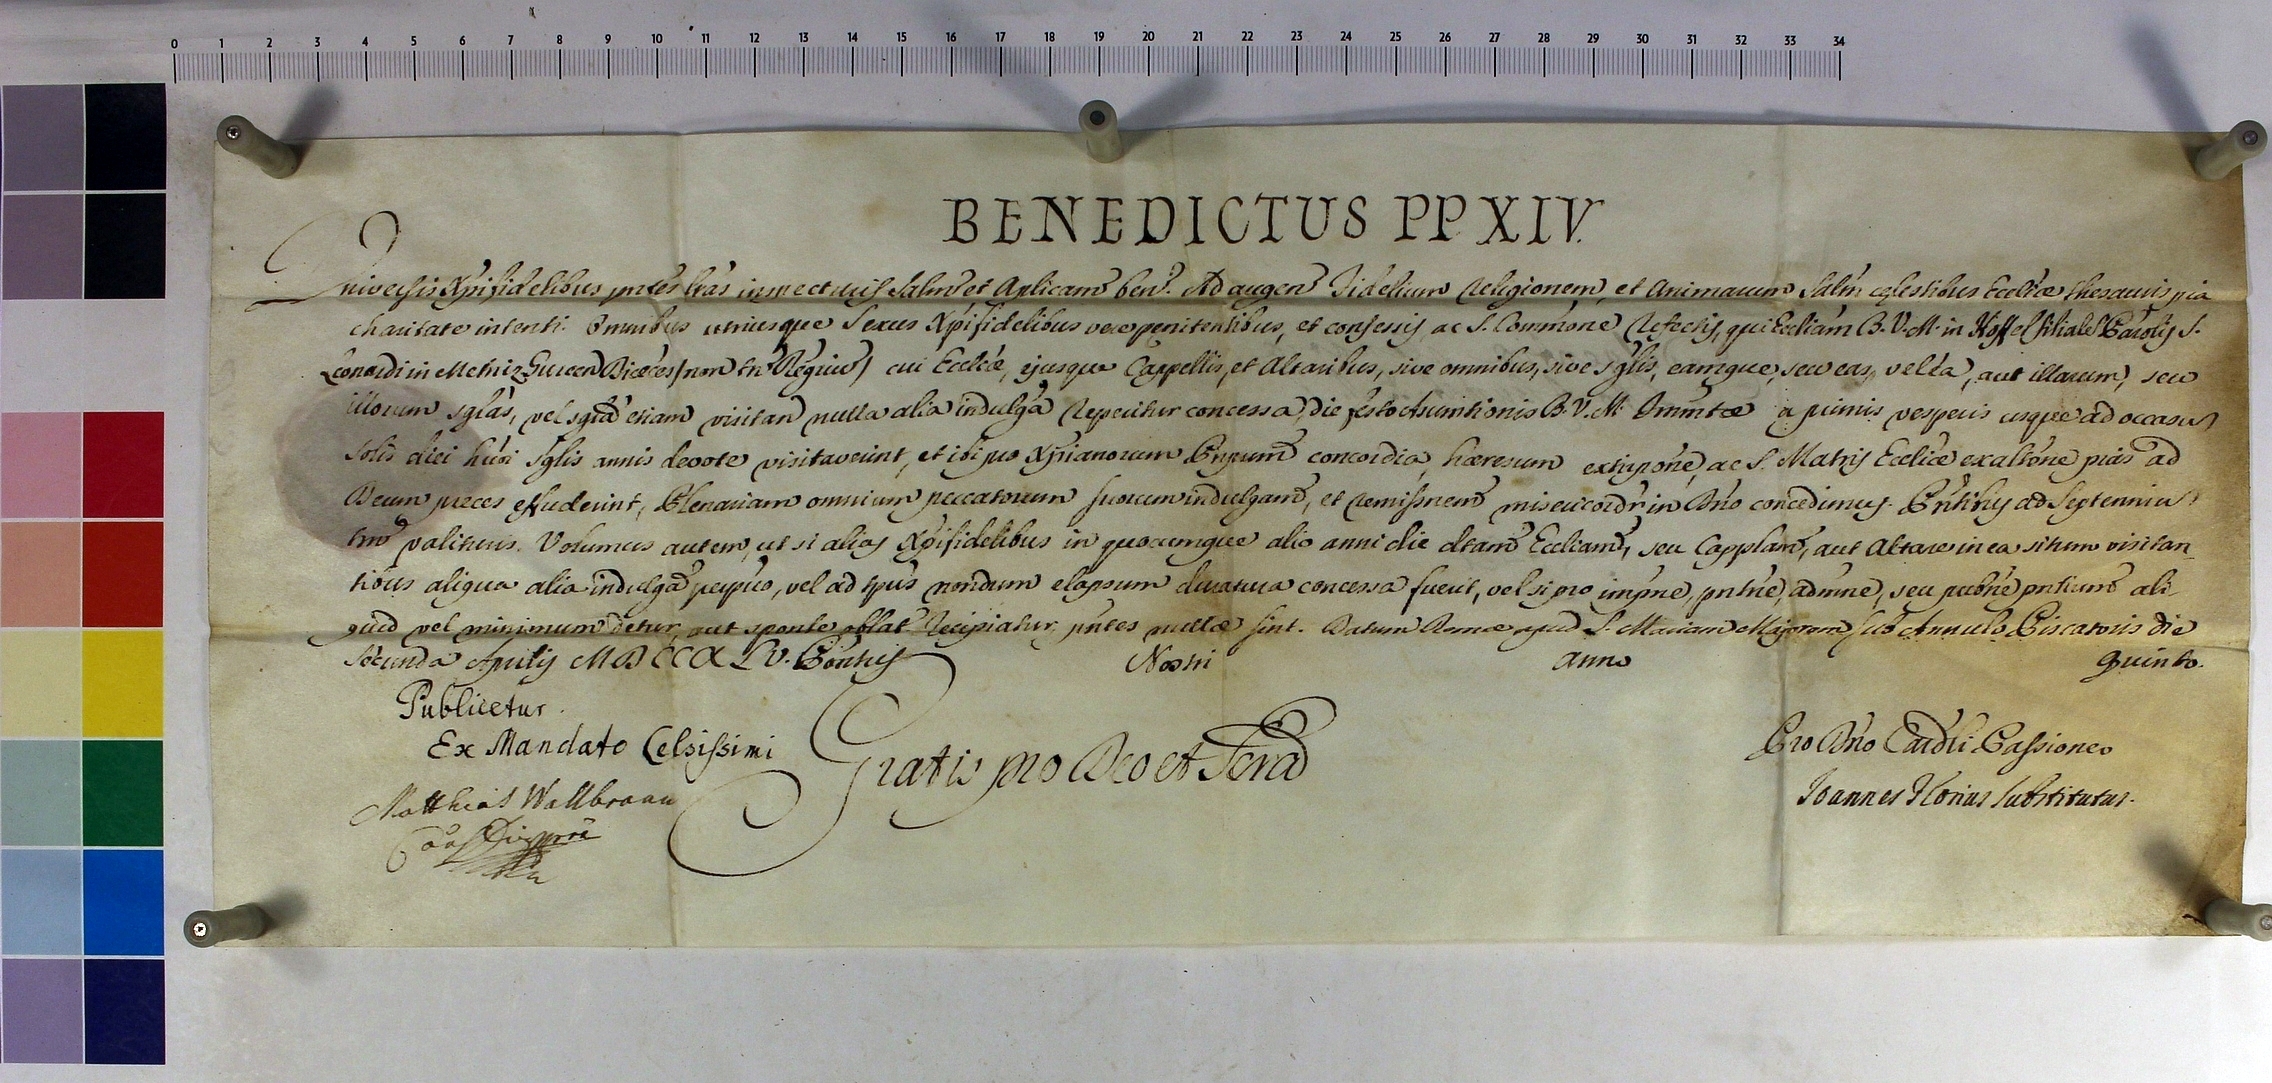 0 1 2 3 4 5 6 7 8 9 10 11 12 13 14 15 16 17 18 19 20 21 22 23 24 25 26 27 28 29 30 31 32 33 34
BENEDICTUS PP XIV.
Universis Xpifidelibus pntes lras inspecturis Salm et Aplicam ben. Ad augen Fidelium Religionem, et Animarum Salm celestibus Ecclìæ thesauris pia
charitate intenti. Omnibus utriusque Sexus Xpifidelibus vere penitentibus, et confessis ac S. Commone Refectis, qui Eccliam B.V.M. in Hoff filialem S.
Leonardi in Metniz Gurcen Dicæces non tn Regiu cui Eccliæ, ejusque Cappellis, et Altaribus, sive omnibus, sive sglis, eamque, seu eas, vel ea, aut illarum, seu
illorum sglas, vel sgla etiam visitan nulla alia indulga reperitur concessa, die festo Assumtionis B.V.M. Immtæ a primis vesperis usque ad occasu
Solis diei hujoi sglis annis devote visitaverint, et ibi pro Xpianorum Prpum concordia, hæresum extirpone, ac S. Matris Eccliæ exaltone pias ad
Deum preces effuderint, Plenariam omnium peccatorum suorum indulgam, et remissnem misericordr in Dno concedimus. Pntibus ad Septenniu
tm valituris. Volumus autem, ut si alias Xpifidelibus in quocumque alio anni die dtam Eccliam, seu Capplam, aut Altare in ea situm visitan
tibus aliqua alia indulga perpuo, vel ad tpus nondum elapsum duratura concessa fuerit, vel si pro impne, pntne, admne, seu publne pntium ali
quid vel minimum detur, aut sponte oblat recipiatur, pntes nullæ sint. Datum Romæ apud S. Mariam Majorem sub Annulo Piscatoris die
Secunda Aprilis MDCCXLV. Pontus Nostri Anno Quinto.
Publicetur.
Ex Mandato Celsissimi
Matthias Wallbraun
Gratis pro Deo et Scrad
Pro Dno Cardli Passioneo
Joannes Florius Substitutus.